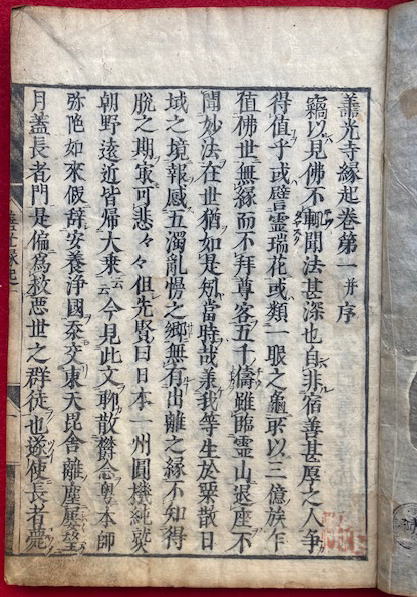 善光寺縁起巻第一并序
竊以見佛不輙聞法甚深也自非宿善甚厚之人争
得值乎或譬霊瑞花或類一眼之龜所以三億族乍
值佛世無縁而不拜尊客五千儔雖臨霊山退座不
聞妙法在世猶如是矧當時哉兼我等生於粟散日
域之境報感五濁亂慢之郷無有出離之縁不知得
脱之期寂可悲々々但先賢曰日本一州圓機純熟
朝野遠近皆帰大乗云云今見此文聊散欝念奥本師
弥陀如来假辞安養浄國忝交東天毘舎離塵屡望
月蓋長者門是偏為救悪世之群徒也遂使長者甍
善光寺縁起一